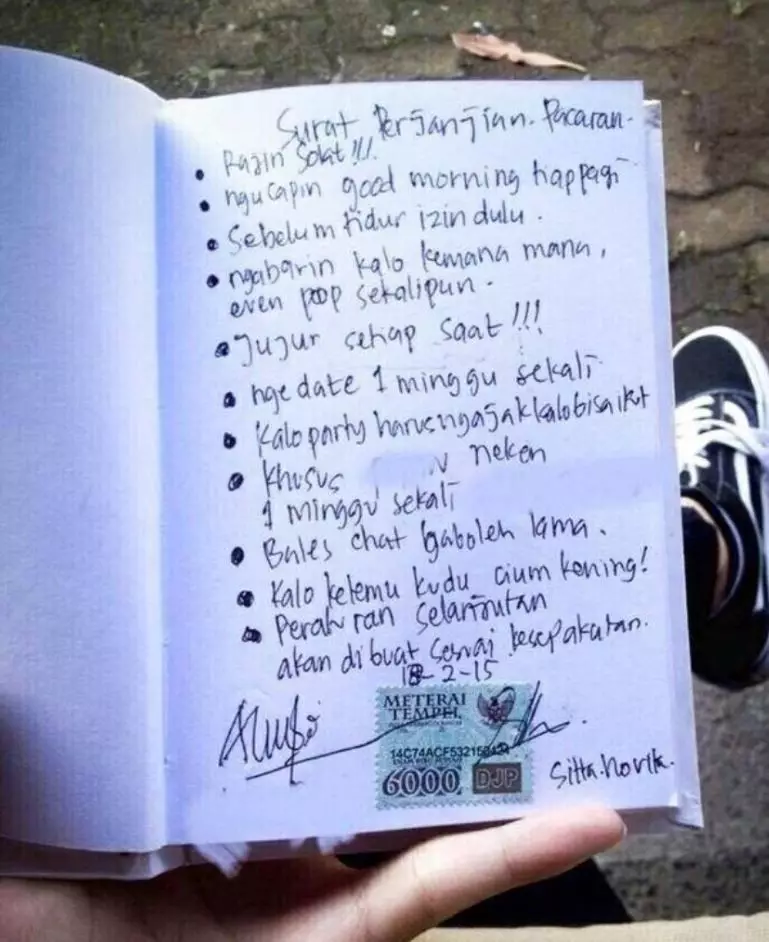 Surat Perjanjian. Pacaran.
• Rajin Solat!!!
• ngucapin good morning tiap pagi
• Sebelum tidur izin dulu.
• ngabarin kalo kemana mana,
even poop sekalipun.
• Jujur setiap saat!!!
• nge date 1 minggu sekali
• Kalo party harus ngajak kalo bisa ikut
• Khusus neken
1 minggu sekali
• Bales chat gaboleh lama.
• Kalo ketemu kudu cium kening!
• Peraturan selanjutan
akan dibuat sesuai kesepakatan.
18-2-15
METERAI
TEMPEL
14C74ACF532150424
6000 DJP
Sitta.novita.